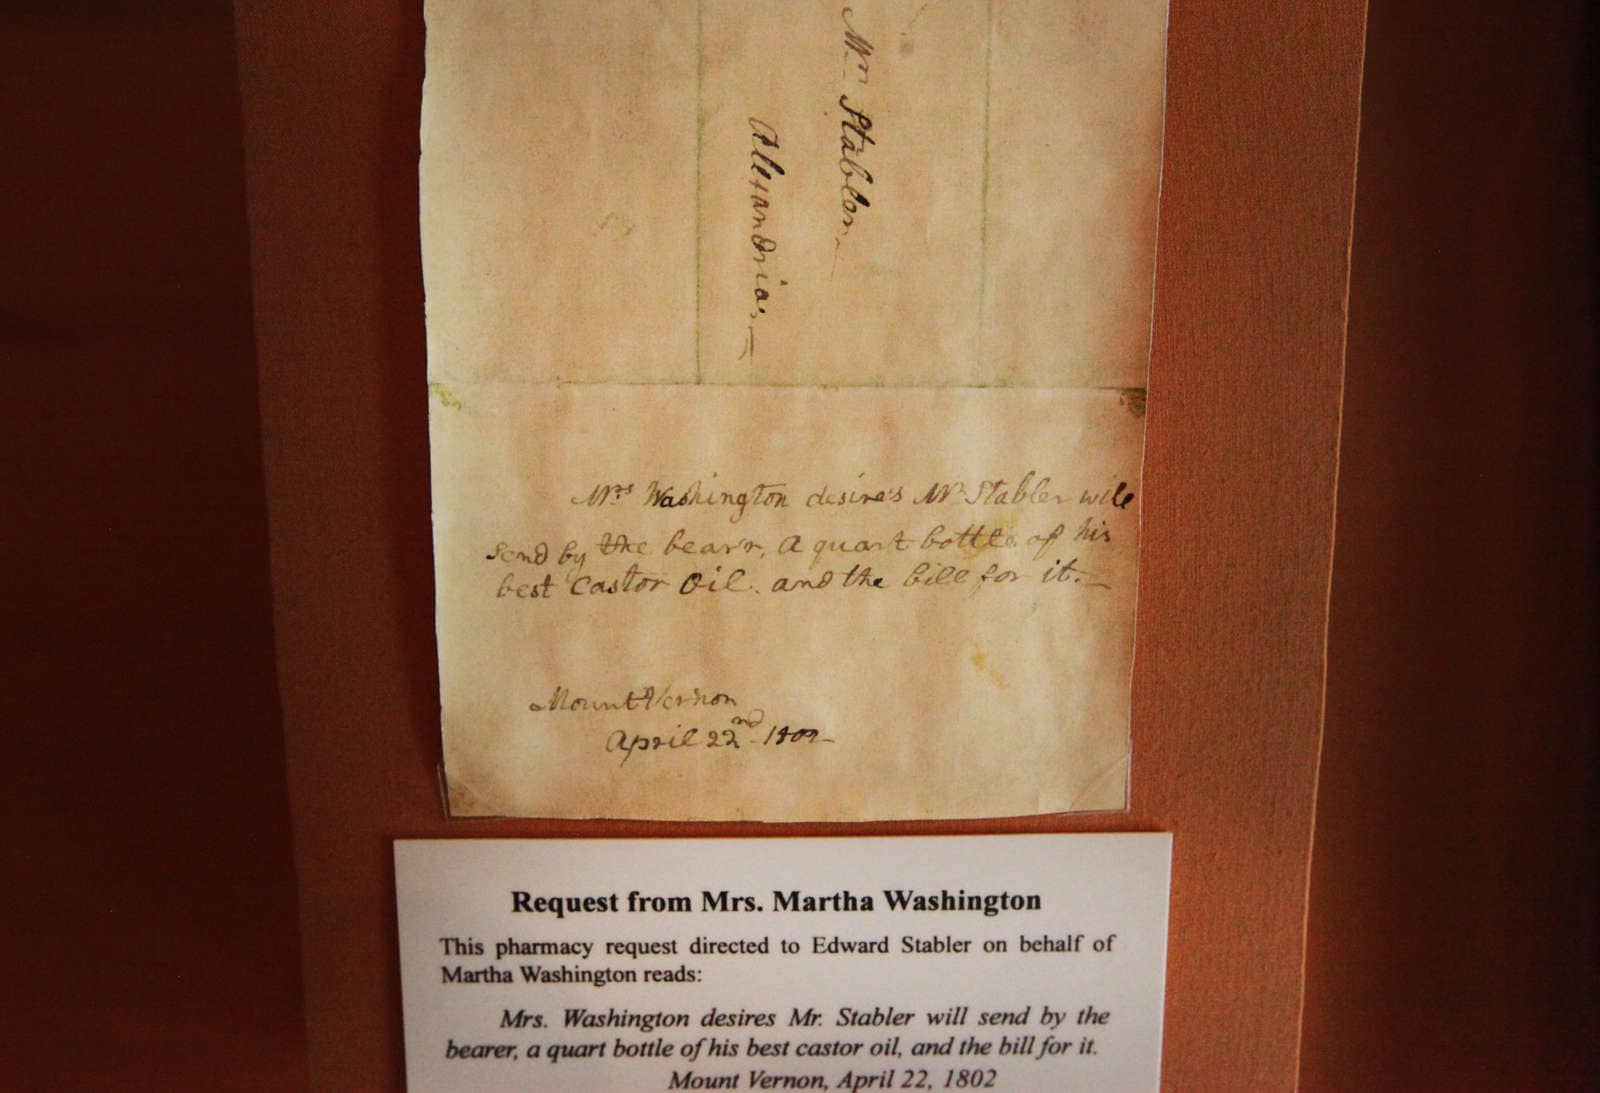 Mr. Stabler
Alexandria
Mrs Washington desires Mr. Stabler will
send by the bearr, A quart bottle of his
best Castor Oil. and the bill for it.
Mount Vernon
April 22nd 1802
Request from Mrs. Martha Washington
This pharmacy request directed to Edward Stabler on behalf of
Martha Washington reads:
Mrs. Washington desires Mr. Stabler will send by the
bearer, a quart bottle of his best castor oil, and the bill for it.
Mount Vernon, April 22, 1802